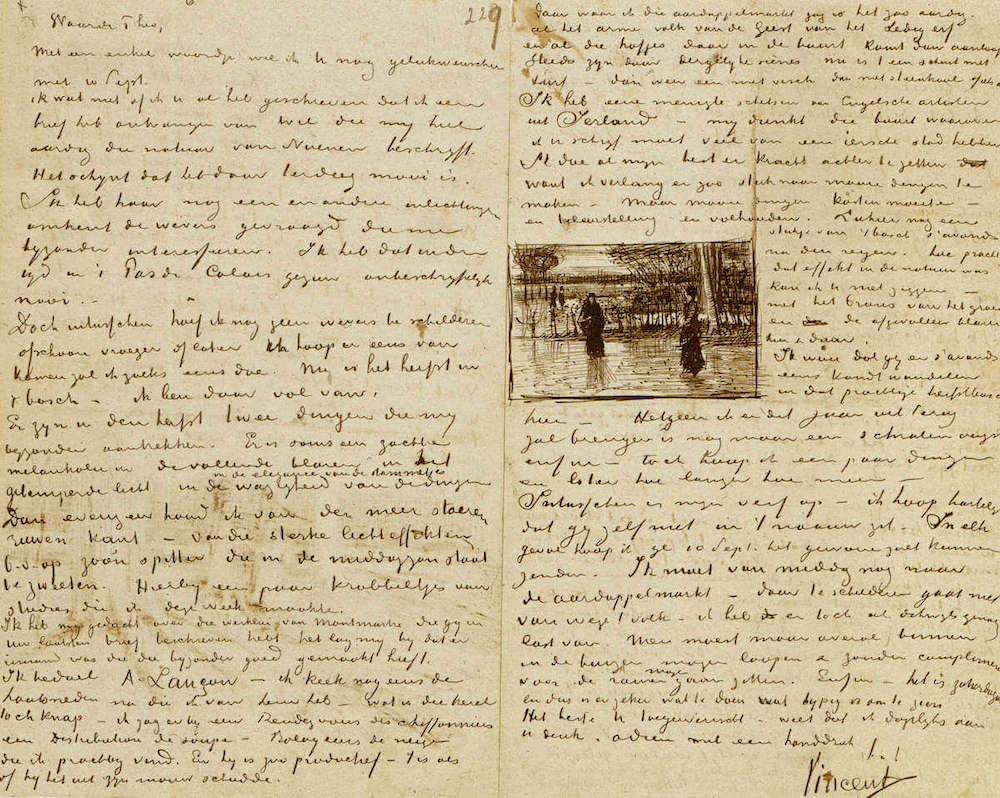 229
Waarde Theo,
Met een enkel woordje wil ik U nog gelukwenschen
met 10 Sept.
Ik weet niet of ik U al heb geschreven dat ik een
brief heb ontvangen van Wil die mij heel
aardig de natuur van Nuenen beschrijft.
Het schijnt dat het daar terdeeg mooi is.
Ik heb haar nog een en andere inlichtingen
omtrent de wevers gevraagd die me
bijzonder interesseeren. Ik heb dat indertijd
in 't Pas de Calais gezien onbeschrijfelijk
mooi. –
Doch intusschen hoef ik nog geen wevers te schilderen
ofschoon vroeger of later ik hoop er eens van
komen zal ik zoiets eens doe. Nu is het herfst in
't bosch – ik ben daar vol van.
Er zijn in den herfst twee dingen die mij
bijzonder aantrekken. Er is soms een zachte
melankolie in de vallende blaren in het
getemperde licht in de wazigheid van de dingen
in de elegance van de stammetjes
Dan evenzeer houd ik van den meer stoeren
ruwen kant – van die sterke lichteffekten
b.v. op zoo'n spitter die in de middagzon staat
te zweten. Hierbij een paar krabbeltjes van
studies die ik deze week maakte.
Ik heb mijn gedacht over die werkers van Montmartre die gij in
Uw laatsten brief beschreven hebt het lag mij bij dat er
iemand was die die bijzonder goed gemaakt heeft.
Ik bedoel A. Lançon – ik keek nog eens de
houtsneden na die ik van hem heb – wat is die kerel
toch knap – ik zag er bij een Rendezvous des chiffonniers
een Distribution de soupe –
die ik prachtig vind. En hij is zoo productief – 't is als
of hij het uit zijn mouw schudde.
Daar waar ik die aardappelmarkt zag is het zoo aardig.
al het arme volk van de Geest van het Ledig erf
en al die hofjes daar in de buurt komt dan aanloopen
Steeds zijn daar dergelijke scènes nu is 't een schuit met
turf – dan weer een met visch dan met steenkool
Ik heb eene menigte schetsen van Engelsche artisten
uit Ierland – mij dunkt die buurt waarover
ik U schrijf moet veel van een iersche stad hebben.
Ik doe al mijn best er kracht achter te zetten
want ik verlang er zoo sterk naar mooie dingen te
maken – Maar mooie dingen kosten moeite –
en teleurstelling en volhouden. Tusschen nog een
studie van 't bosch 's avonds
na den regen. hoe prachtig
dat effekt in de natuur was
kan ik U niet zeggen –
met het brons van het groen
en de afgevallen blaren
hier & daar.
Ik wou dat gij er 's avonds
eens kondt wandelen
in dat prachtige herfstbosch
hier – Hetgeen ik er dit jaar uit terug
zal brengen is nog maar een schralen oogst
enfin – toch hoop ik een paar dingen
en later hoe langer hoe meer –
Intusschen is mijn verf op – ik hoop hartelijk
dat gij zelf niet in 't naauw zit. – In elk
geval hoop ik ge 10 Sept. het gewone zult kunnen
zenden. Ik moet van middag nog naar
de aardappelmarkt – daar te schilderen gaat niet
van wege 't volk – ik heb er toch al dikwijls genoeg
last van. Men moest maar overal binnen
in de huizen mogen loopen & zonder complimenten
voor de ramen mogen gaan zitten. Enfin – het is zaterdag
en dus is er zeker wat te doen wat typig is om te zien
Het beste U toegewenscht – weet dat ik dagelijks aan
U denk. adieu met een handdruk
t. à t.
Vincent